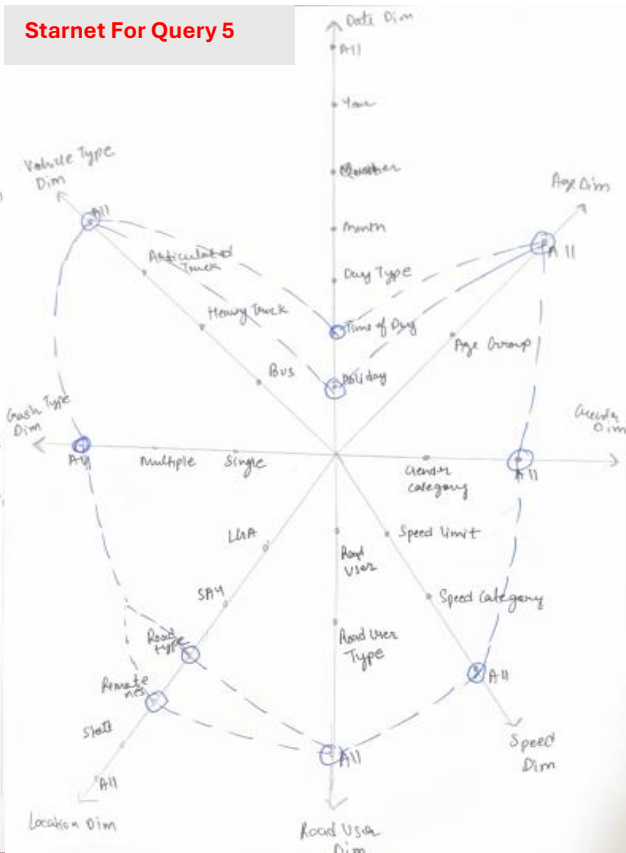 Starnet For Query 5
Date Dim
All
Year
Quarter
Month
Day Type
Time of Day
Holiday
Vehicle Type
Dim
All
Articulated
Truck
Heavy Truck
Bus
Age Dim
All
Age Group
Crash Type
Dim
All
Multiple
Single
Gender
Dim
All
Gender
category
LGA
SA4
Road
type
Remote
nes
State
All
Location Dim
Road
User
Road User
Type
All
Road User
Dim
Speed Limit
Speed Category
All
Speed
Dim